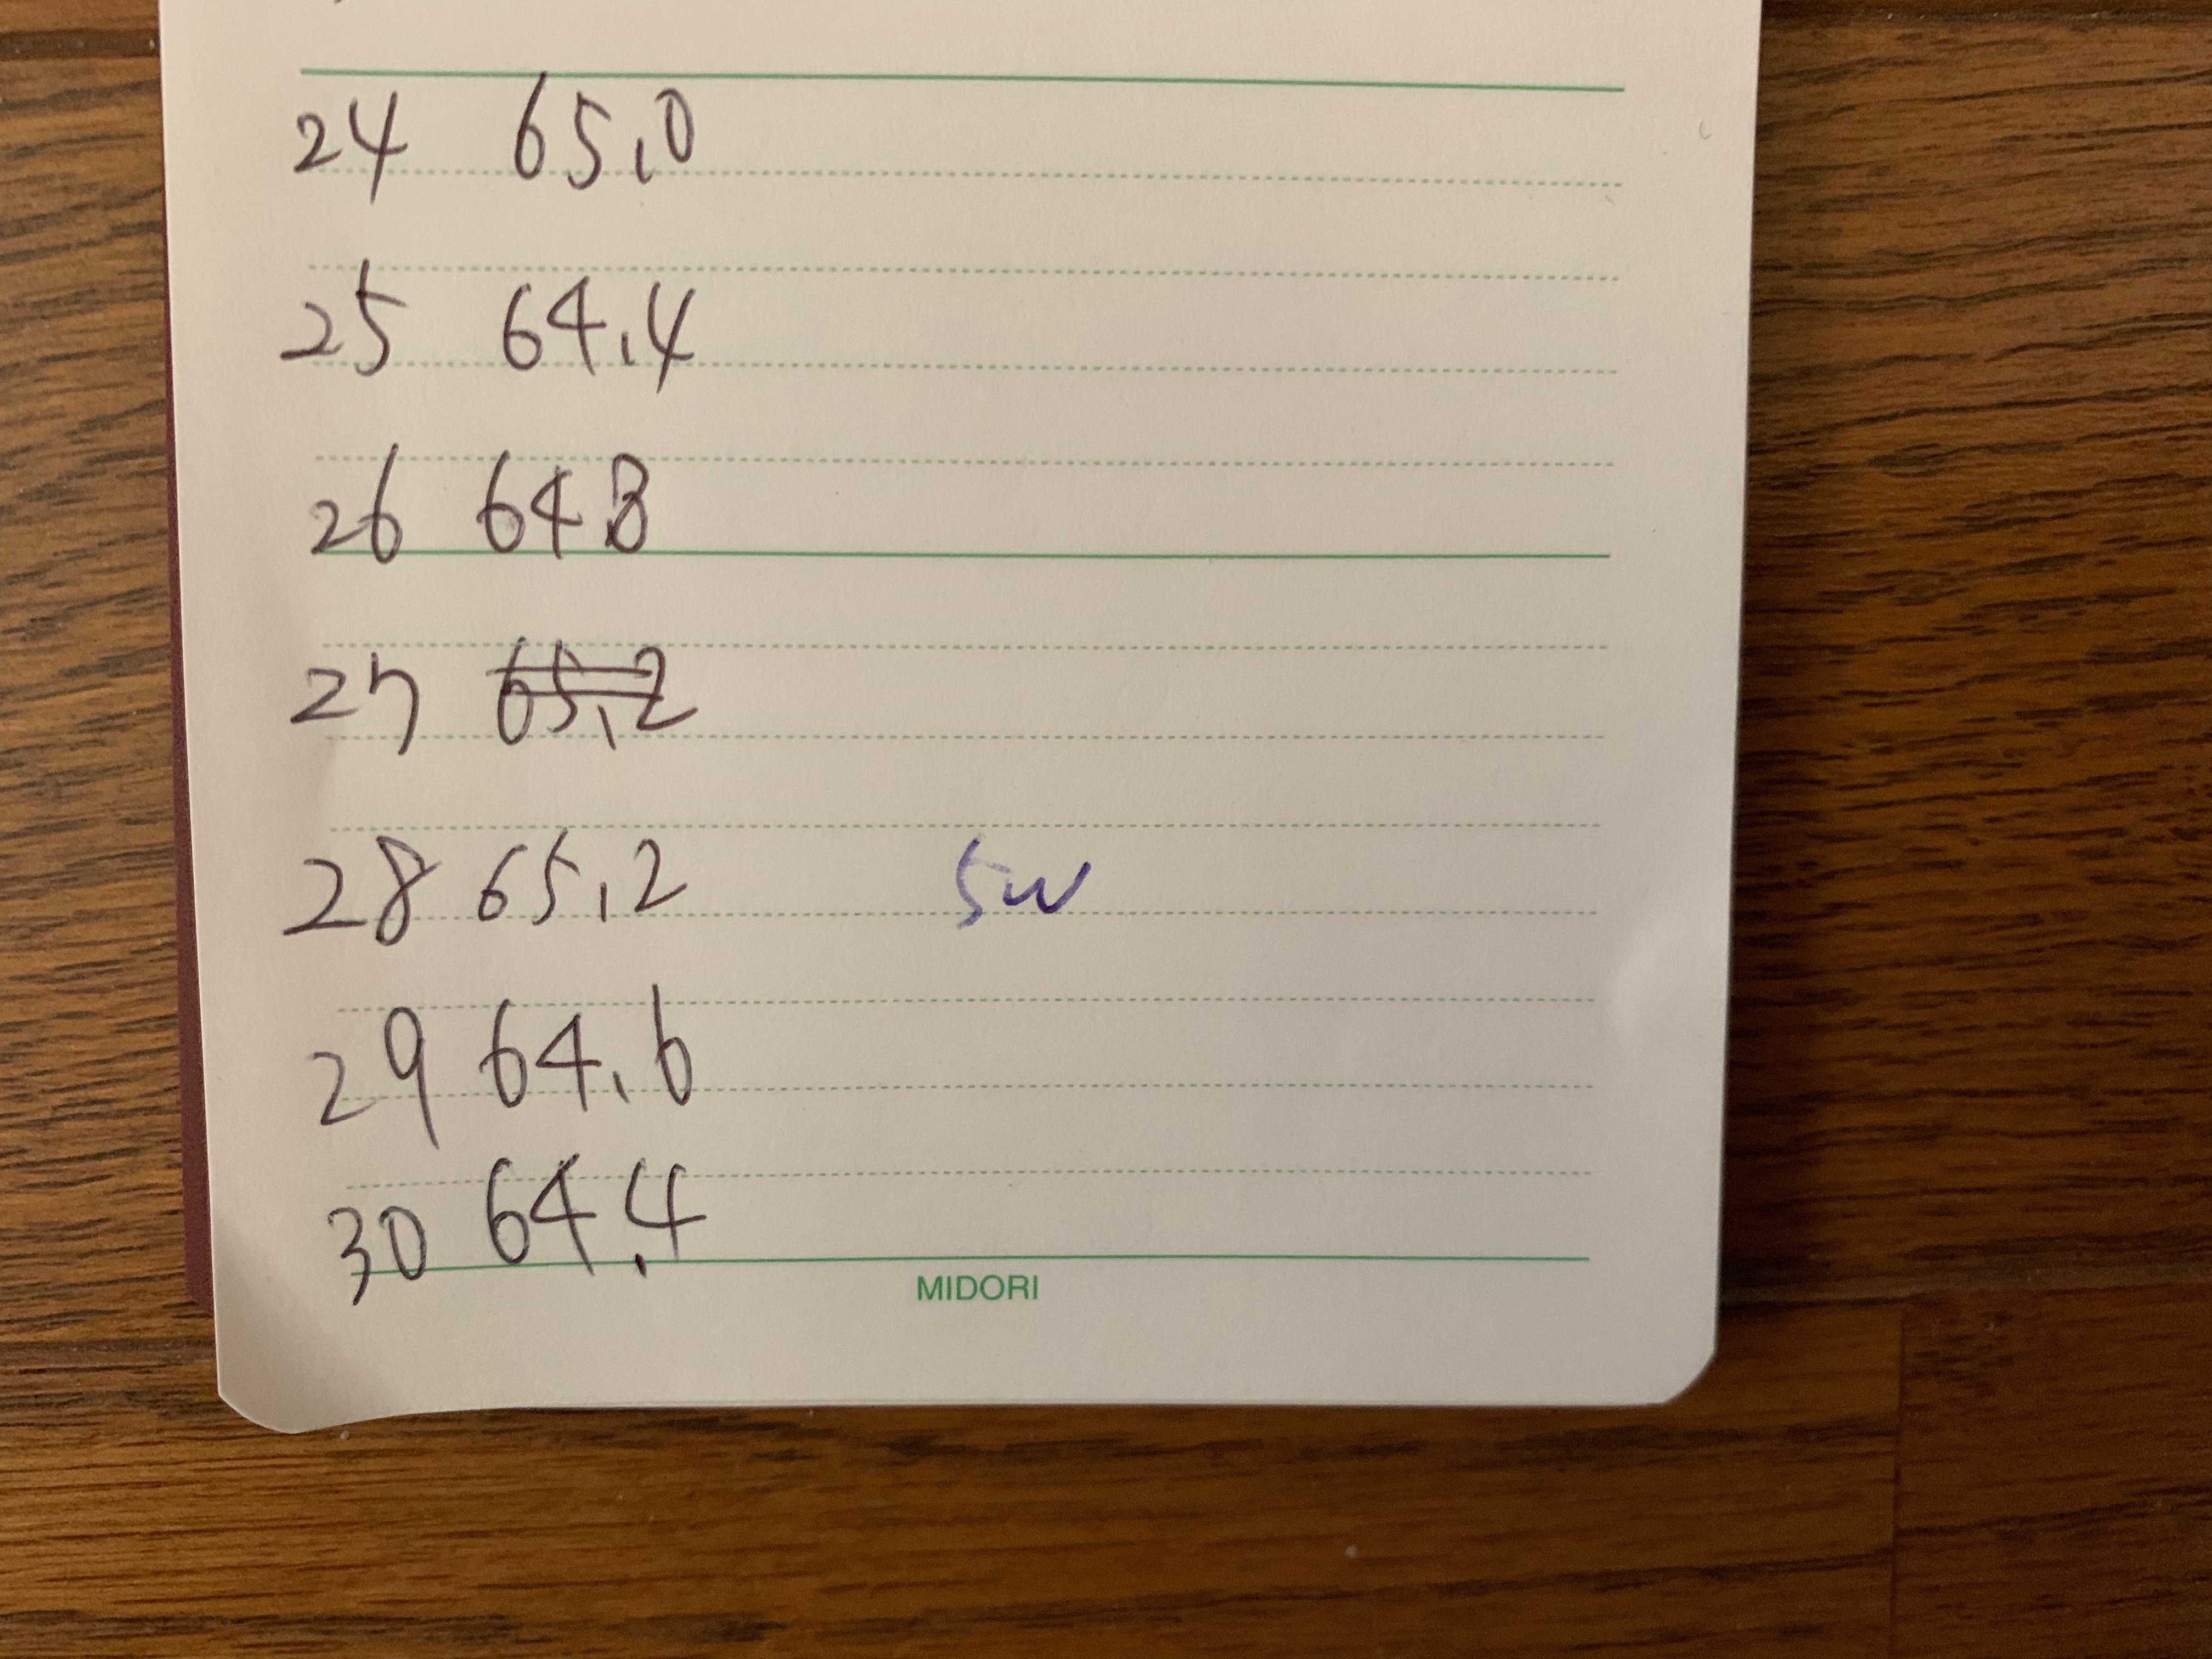 24 65.0
25 64.4
26 64.8
27 65.2
28 65.2 sw
29 64.6
30 64.4
MIDORI